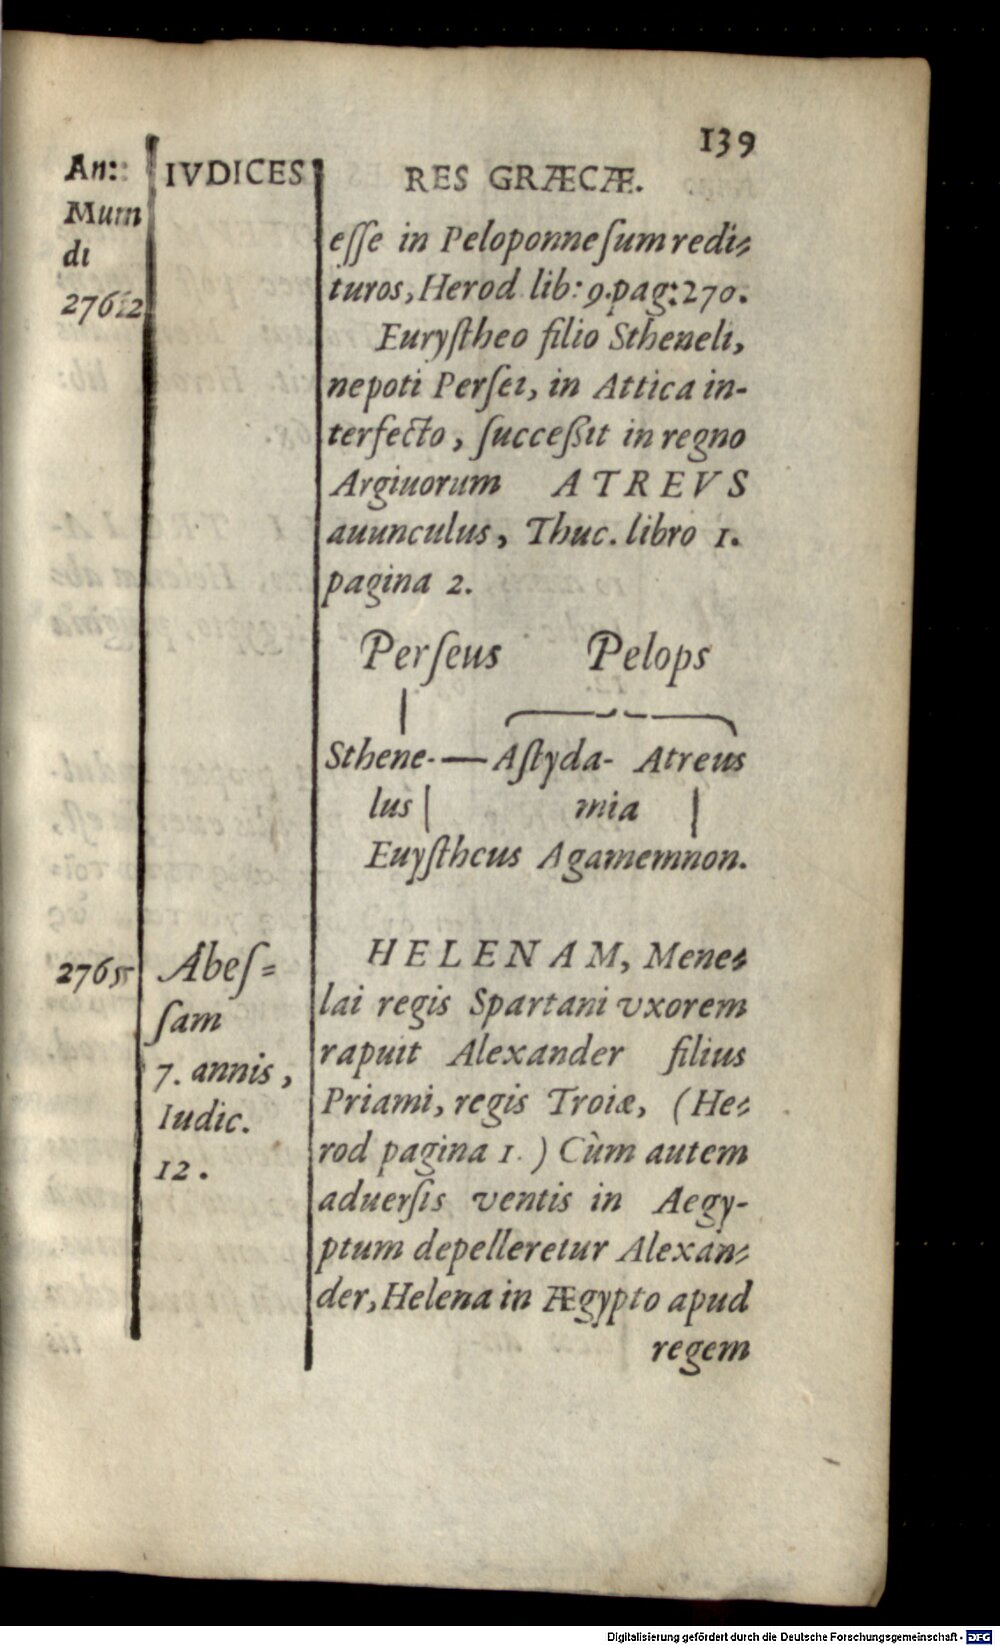 139
An: IVDICES RES GRÆCÆ.
Mum
di
27612
eſſe in Peloponneſum redi⸗
turos, Herod lib: 9. pag: 270.
Euryſtheo filio Stheneli,
nepoti Perſei, in Attica in-
terfecto, ſucceßit in regno
Argiuorum ATREVS
auunculus, Thuc. libro 1.
pagina 2.
Perſeus Pelops
Sthene-—Aſtyda- Atreus
lus mia
Euyſtheus Agamemnon.
27655 Abeſ⸗
ſam
7. annis,
Iudic.
12.
HELENAM, Mene⸗
lai regis Spartani vxorem
rapuit Alexander filius
Priami, regis Troiæ, (He⸗
rod pagina 1.) Cùm autem
aduerſis ventis in Aegy-
ptum depelleretur Alexan⸗
der, Helena in Ægypto apud
regem
Digitalisierung gefördert durch die Deutsche Forschungsgemeinschaft - DFG